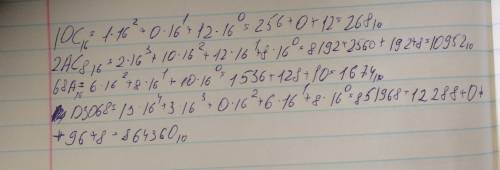 10C₁₆=1·16²+0·16¹+12·16⁰=256+0+12=268₁₀
2AC8₁₆=2·16³+10·16²+12·16¹+8·16⁰=8192+2560+192+8=10952₁₀
68A₁₆=6·16²+8·16¹+10·16⁰=1536+128+10=1674₁₀
D3068=13·16⁴+3·16³+0·16²+6·16¹+8·16⁰=851968+12288+0+
+96+8=864360₁₀